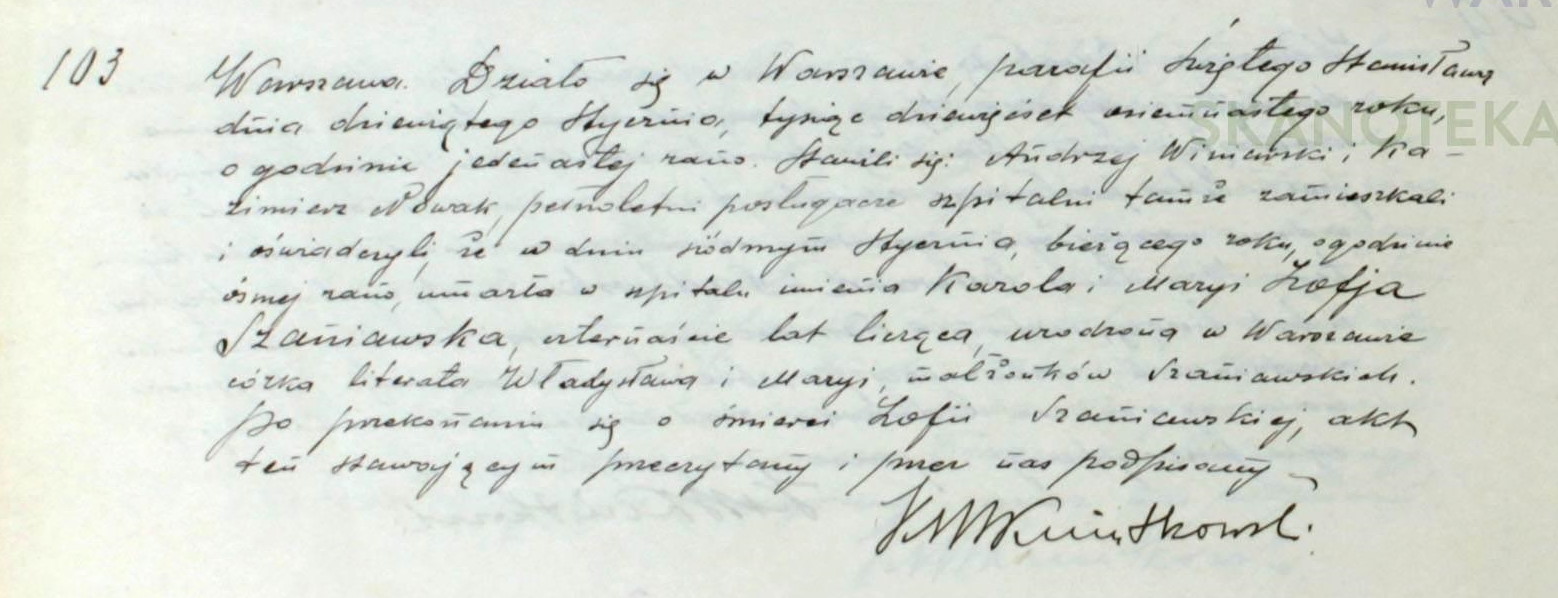 103 Warszawa. Działo się w Warszawie, parafii Świętego Stanisława
dnia dziewiątego Stycznia, tysiąc dziewięćset osiemnastego roku,
o godzinie jedenastej rano. Stawili się: Andrzej Winiarski i Ka-
zimierz Nowak, pełnoletni posługacze szpitalni tamże zamieszkali
i oświadczyli, że w dniu siódmym Stycznia, bieżącego roku, o godzinie
ósmej rano, umarła w szpitalu imienia Karola i Maryi Zofja
Szaniawska, czternaście lat licząca, urodzona w Warszawie
córka literata Władysława i Maryi, małżonków Szaniawskich.
Po przekonaniu się o śmierci Zofii Szaniawskiej, akt
ten stawającym przeczytany i przez nas podpisany
SKANOTEKA